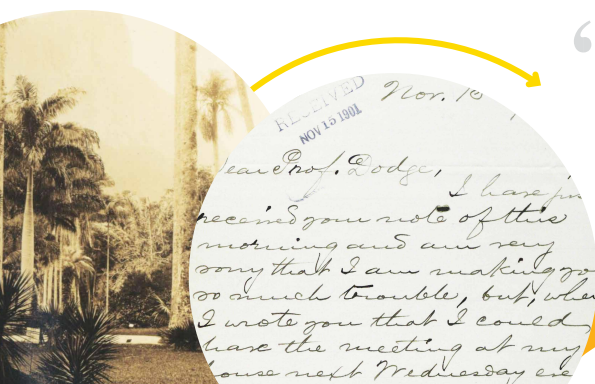 “
RECEIVED
NOV 15 1901
Nov. 10
Dear Prof. Dodge,
I have jus
received your note of this
morning and am very
sorry that I am making yo
so much trouble, but, when
I wrote you that I could
have the meeting at my
house next Wednesday eve